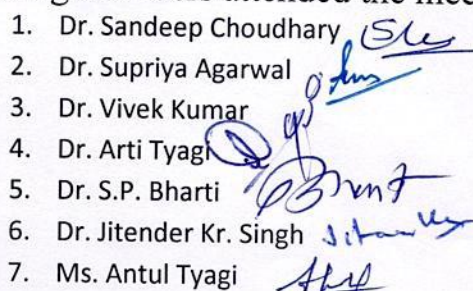 attended the mee
1. Dr. Sandeep Choudhary
2. Dr. Supriya Agarwal
3. Dr. Vivek Kumar
4. Dr. Arti Tyagi
5. Dr. S.P. Bharti
6. Dr. Jitender Kr. Singh
7. Ms. Antul Tyagi